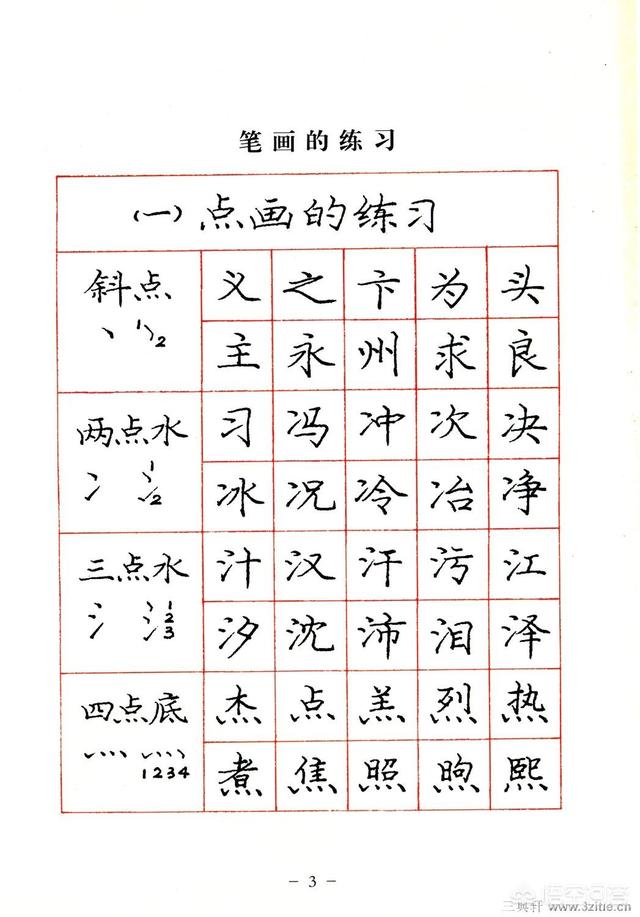 笔画的练习
(一)点画的练习
斜点
丶 1 2
义之卞为头
主永州求良
两点水
冫 1 2
习冯冲次决
冰况冷冶净
三点水
氵 1 2 3
汁汉汗污江
汐沈沛泪泽
四点底
灬 1234
杰点羔烈热
煮焦照煦熙
- 3 -
悟空问答
三典轩 www.3zitie.cn